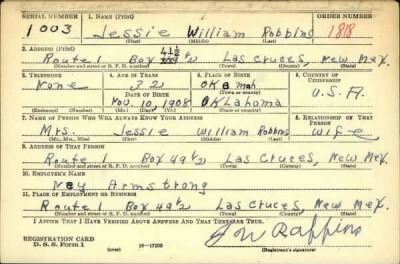 SERIAL NUMBER 1. NAME (Print) ORDER NUMBER
1003 Jessie William Robbins 188
(First) (Middle) (Last)
2. ADDRESS (Print) 41½
Route 1 Box Las Cruces, New Mex.
(Number and street or R. F. D. number) (Town) (County) (State)
3. TELEPHONE 4. AGE IN YEARS 5. PLACE OF BIRTH 6. COUNTRY OF CITIZENSHIP
None 32 Okemah U.S.A
DATE OF BIRTH (Town or county)
Nov. 10, 1908 Oklahoma
(Exchange) (Number) (Mo.) (Day) (Yr.) (State or country)
7. NAME OF PERSON WHO WILL ALWAYS KNOW YOUR ADDRESS 8. RELATIONSHIP OF THAT PERSON
Mrs. Jessie William Robbins wife
(Mr., Mrs., Miss) (First) (Middle) (Last)
9. ADDRESS OF THAT PERSON
Route 1 Box 49½ Las Cruces, New Mex.
(Number and street or R. F. D. number) (Town) (County) (State)
10. EMPLOYER'S NAME
Ney Armstrong
11. PLACE OF EMPLOYMENT OR BUSINESS
Route 1 Box 49½ Las Cruces, New Mex.
(Number and street or R. F. D. number) (Town) (County) (State)
I AFFIRM THAT I HAVE VERIFIED ABOVE ANSWERS AND THAT THEY ARE TRUE.
REGISTRATION CARD
D. S. S. Form 1 (over) 16—17105 (Registrant's signature)